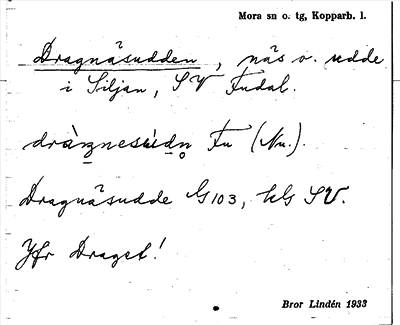 Mora sn o. tg, Kopparb. l.
Dragnäsudden, näs o. udde
i Siljan, SV Fudal.
dràngnesùdn̥ Fu (Nu.).
Dragnäsudde G103, kG SV.
Jfr Draget!
Bror Lindén 1933